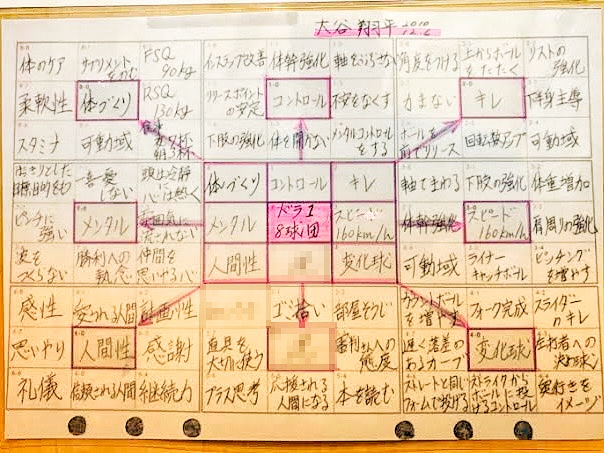 大谷翔平 2010 12.6
体のケア サプリメントをのむ FSQ 90kg インステップ改善 体幹強化 軸をぶらさない 角度をつける 上からボールをたたく リストの強化
柔軟性 体づくり RSQ 130kg リリースポイントの安定 コントロール 不安をなくす 力まない キレ 下半身主導
スタミナ 可動域 食事 夜7杯 朝3杯 下肢の強化 体を開かない メンタルコントロールをする ボールを前でリリース 回転数アップ 可動域
はっきりとした目標、目的をもつ 一喜一憂しない 頭は冷静に心は熱く 体づくり コントロール キレ 軸でまわる 下肢の強化 体重増加
ピンチに強い メンタル 雰囲気に流されない メンタル ドラ1 8球団 スピード 160km/h 体幹強化 スピード 160km/h 肩周りの強化
波をつくらない 勝利への執念 仲間を思いやる心 人間性 変化球 可動域 ライナーキャッチボール ピッチングを増やす
感性 愛される人間 計画性 ゴミ拾い 部屋そうじ カウントボールを増やす フォーク完成 スライダーのキレ
思いやり 人間性 感謝 道具を大切に使う 審判さんへの態度 遅く落差のあるカーブ 変化球 左打者への決め球
礼儀 信頼される人間 継続力 プラス思考 応援される人間になる 本を読む ストレートと同じフォームで投げる ストライクからボールに投げるコントロール 奥行きをイメージ